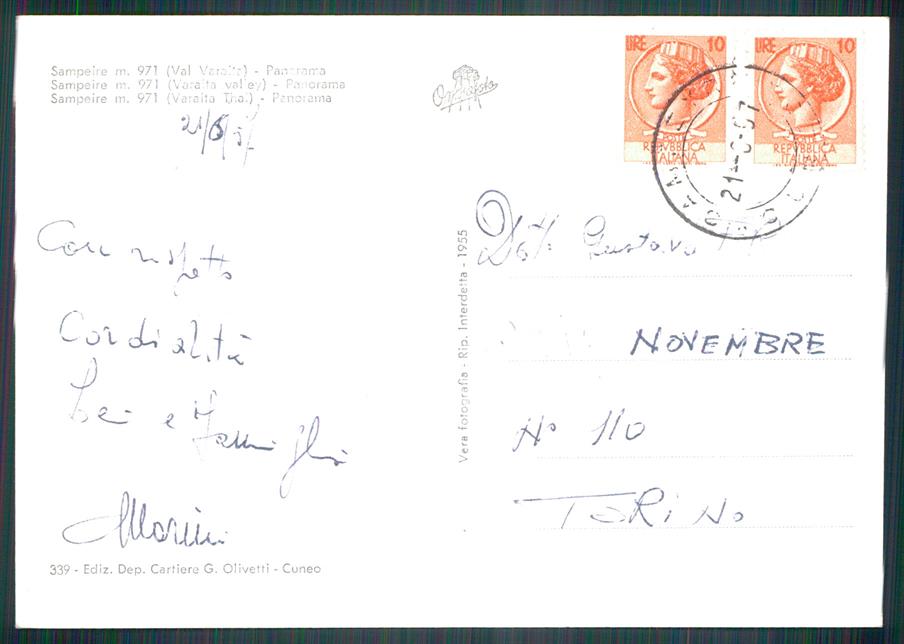 Sampeire m. 971 (Val Varaita) - Panorama
Sampeire m. 971 (Varaita valley) - Panorama
Sampeire m. 971 (Varaita Thal) - Panorama
21/6/57
Con rispetto
Cordialità
Lei e Famiglia
339 - Ediz. Dep. Cartiere G. Olivetti - Cuneo
Vera fotografia - Rip. Interdetta - 1955
LIRE 10
POSTE
REPVBBLICA
ITALIANA
LIRE 10
POSTE
REPVBBLICA
ITALIANA
21-6-57
Dott. Gustavo
NOVEMBRE
N° 110
TORINO